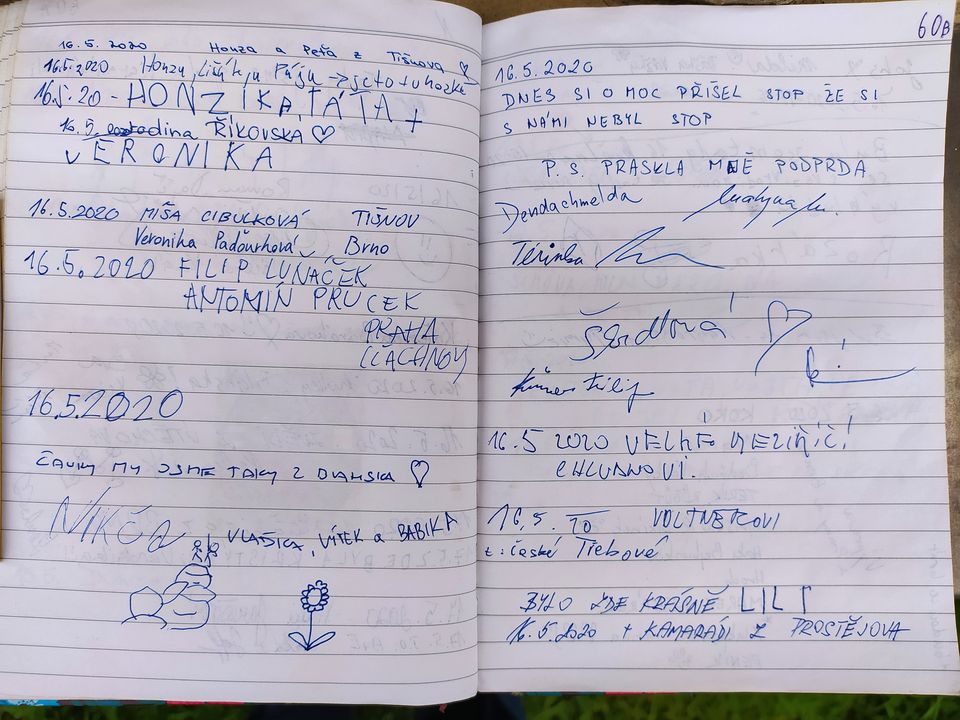 16.5.2020 Honza a Peťa z Tišnova
16.5.2020 Honzu, Lišák, a Páju
16.5.20 - HONZÍK A TÁTA +
16.5. rodina ŘÍKOVSKÁ
VERONIKA
16.5.2020 MÍŠA CIBULKOVÁ TIŠNOV
Veronika Padourková Brno
16.5.2020 FILIP LUŇÁČEK
ANTONÍN PRUCEK
PRAHA
16.5.2020
ČAUKY MY JSME TAKY Z
NIKČA
VLAŠICA, VÍTEK a BABIKA
60B
16.5.2020
DNES SI O MOC PŘIŠEL STOP ŽE SI
S NÁMI NEBYL STOP
P.S. PRASKLA MNĚ PODPRDA
Dendachmelda
Terinka
16.5 2020 VELKÉ MEZIŘÍČÍ
CHLUBNOVI.
16.5. 20 VOLTNEROVI
z: české Třebové
BYLO ZDE KRÁSNĚ LILI
16.5.2020 + KAMARÁDI Z PROSTĚJOVA